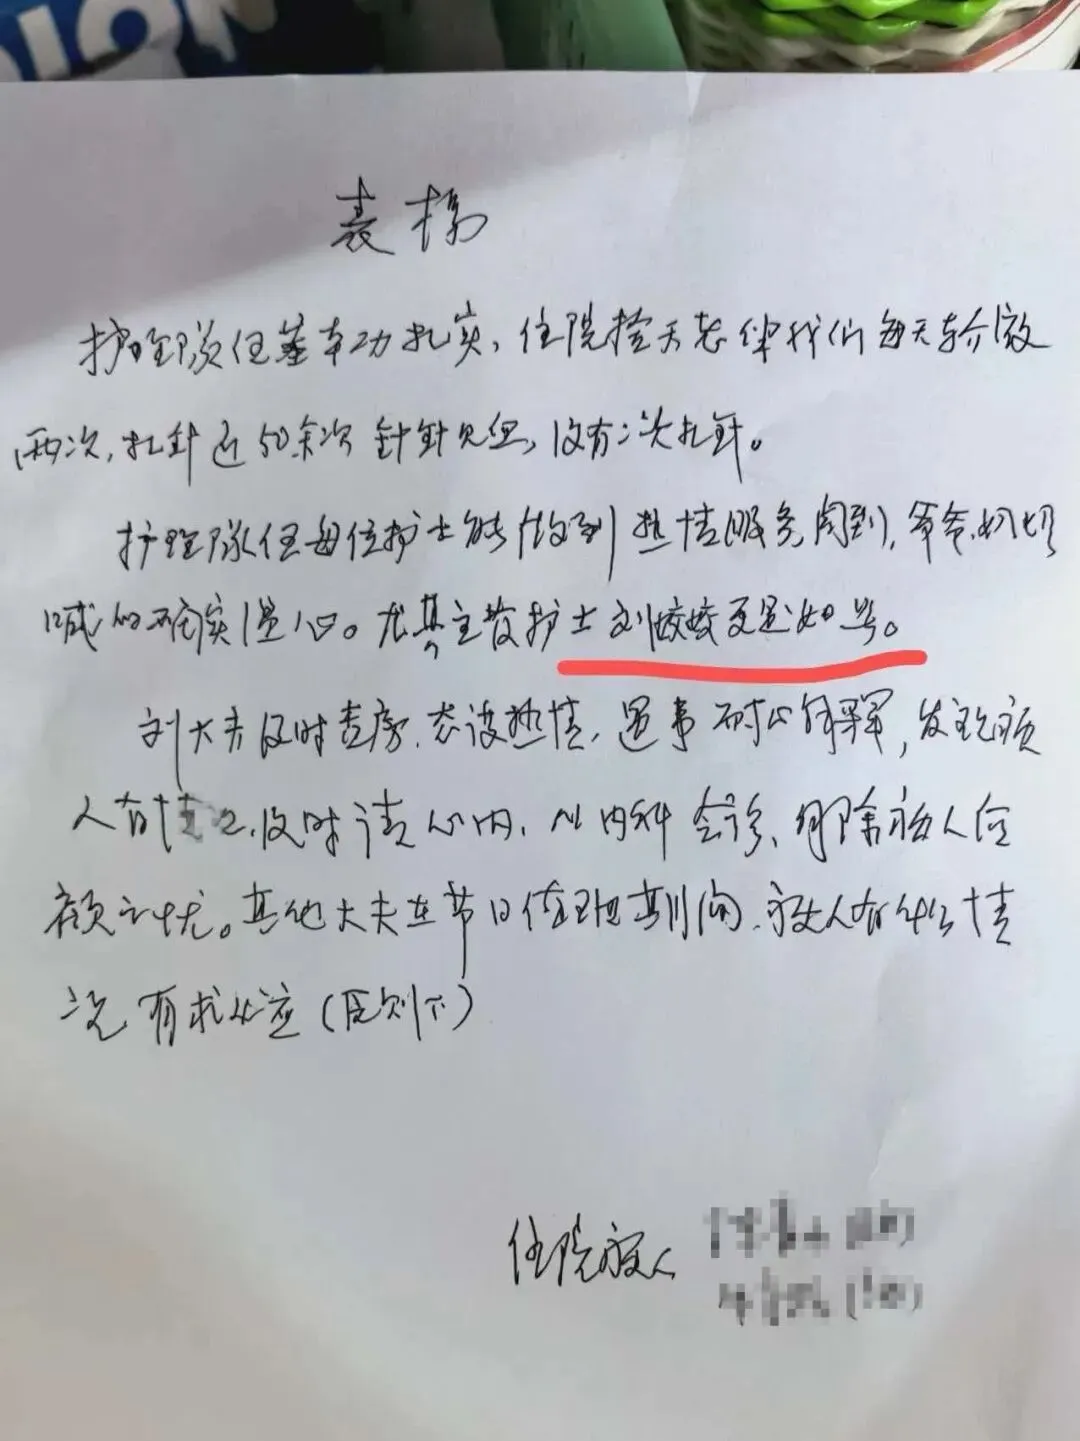 表扬
护理队伍基本功扎实,住院 我们每天输液
两次,扎针近50余次针针见血,没有二次扎针。
护理队伍每位护士能做到热情服务周到,爷爷奶奶
喊的确实温心。尤其主管护士刘姣姣更是如此。
刘大夫及时查房,态度热情,遇事耐心解释,发现病
人有情况,及时请心内,心内科会诊,解除病人后
顾之忧。其他大夫在节日值班期间,病人有什么情
况有求必应(原则下)
住院病人